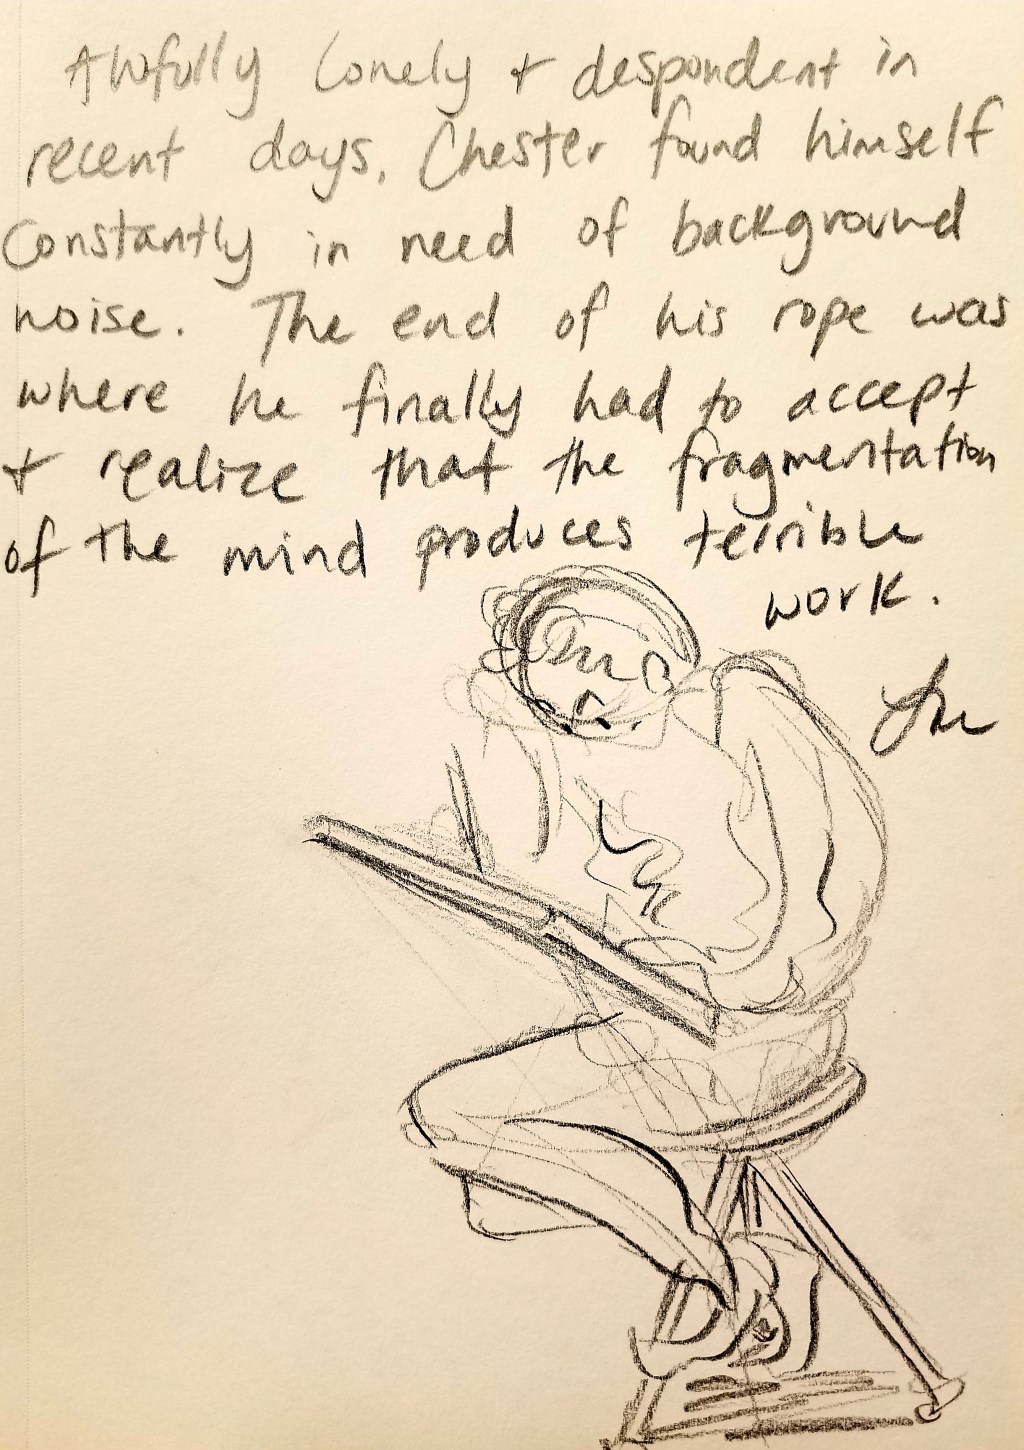 Awfully lonely + despondent in
recent days, Chester found himself
Constantly in need of background
noise. The end of his rope was
where he finally had to accept
+ realize that the fragmentation
of the mind produces terrible
work.